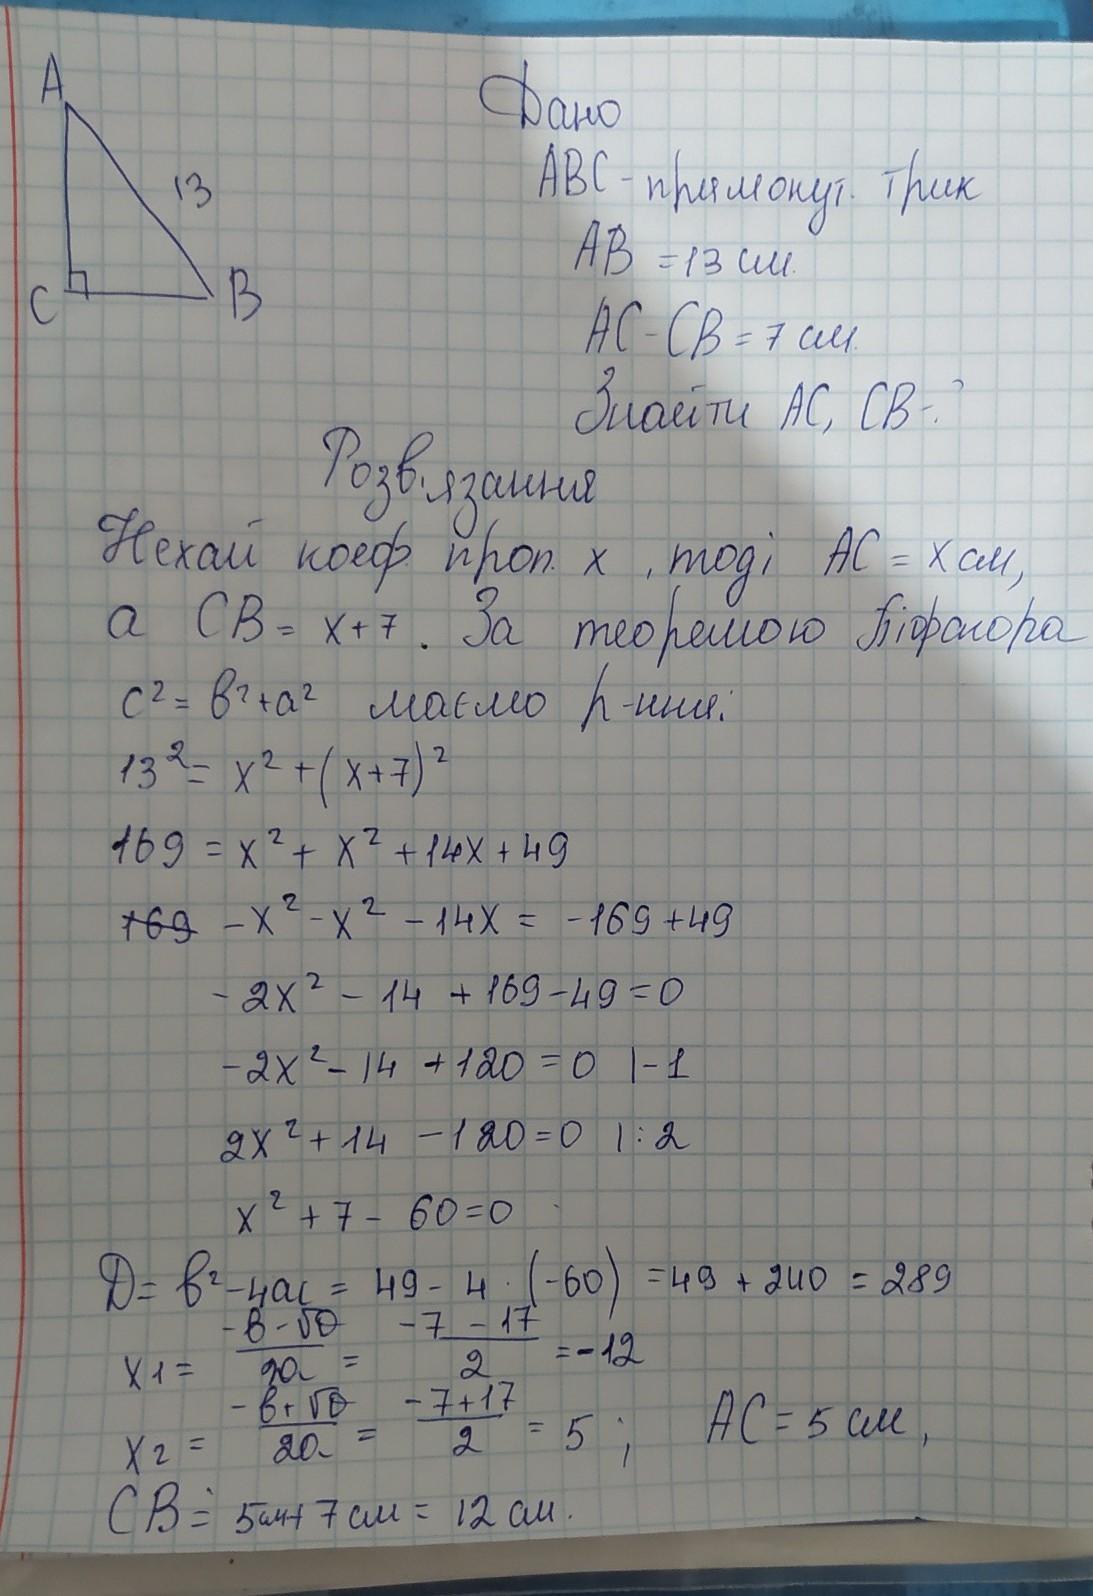 A
13
C
B
Дано
ABC - прямокут. трик
AB = 13 см.
AC - CB = 7 см.
Знайти AC, CB - ?
Розв'язання
Нехай коеф. проп. x, тоді AC = x см,
а CB = x + 7. За теоремою Піфагора
c² = b² + a² маємо р-ння:
13² = x² + (x+7)²
169 = x² + x² + 14x + 49
169 -x² - x² - 14x = -169 + 49
-2x² - 14 + 169 - 49 = 0
-2x² - 14 + 120 = 0 |-1
2x² + 14 - 120 = 0 |:2
x² + 7 - 60 = 0
D = b² - 4ac = 49 - 4 · (-60) = 49 + 240 = 289
x1 = (-b - √D)/2a = (-7 - 17)/2 = -12
x2 = (-b + √D)/2a = (-7 + 17)/2 = 5; AC = 5 см,
CB = 5см + 7 см = 12 см.